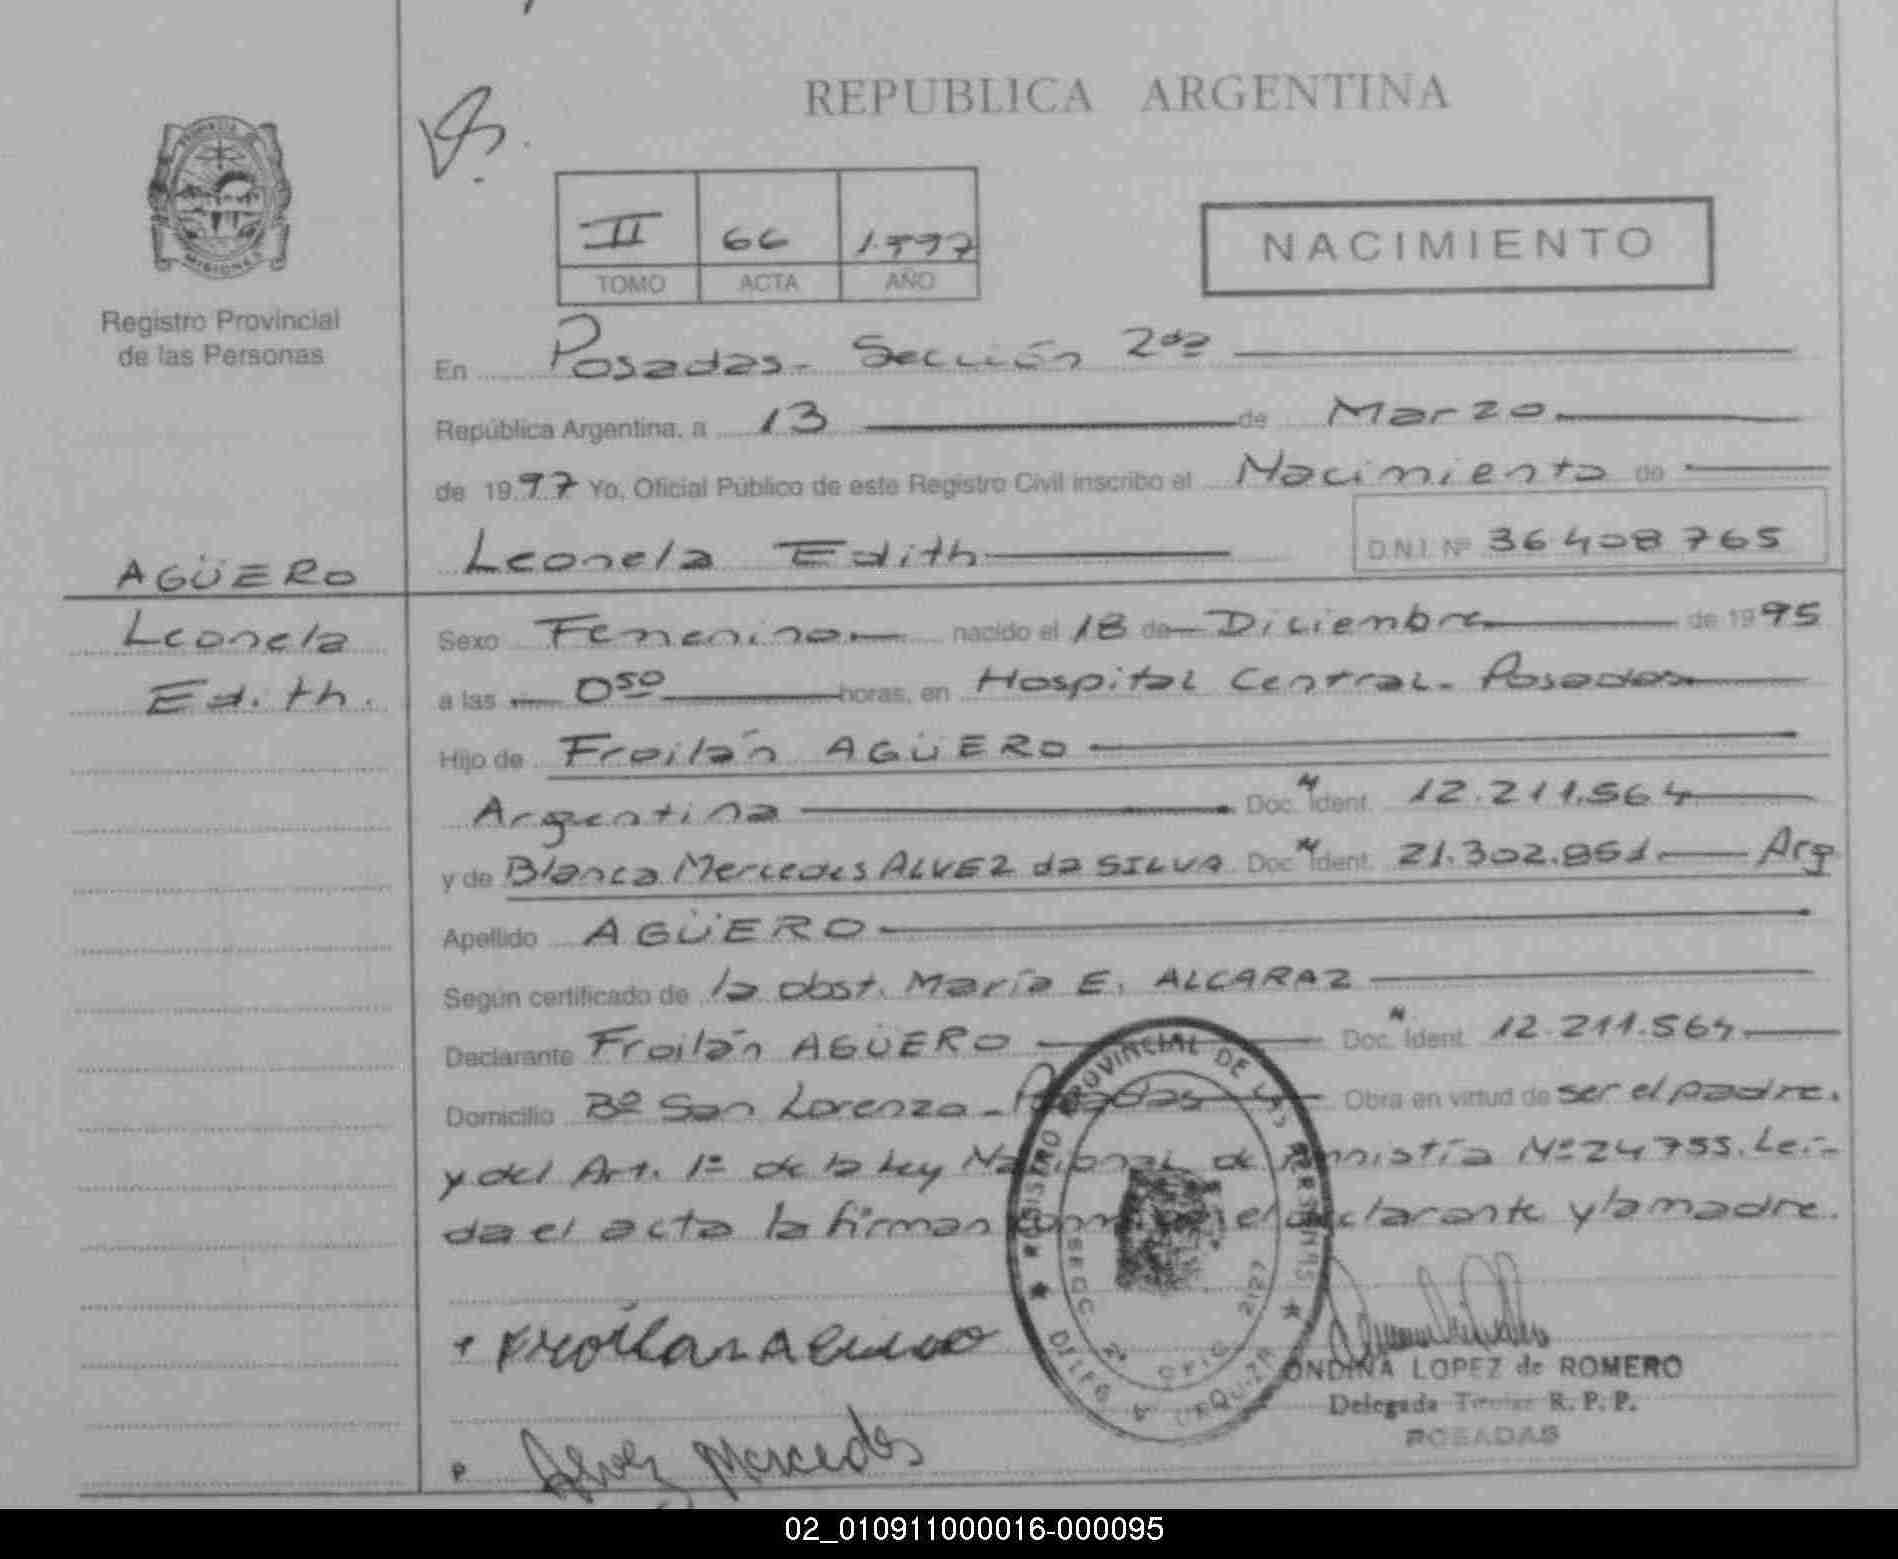 REPUBLICA ARGENTINA
PROVINCIA
MISIONES
Registro Provincial
de las Personas
II 66 1.997
TOMO ACTA AÑO
NACIMIENTO
En Posadas- Sección 2da
República Argentina, a 13 de Marzo
de 1997 Yo, Oficial Público de este Registro Civil inscribo el Nacimiento de
Leonela Edith D.N.I. Nº 36408765
AGÜERO
Leonela
Edith.
Sexo Femenino nacido el 18 de Diciembre de 1995
a las 0 50 horas, en Hospital Central- Posadas
Hijo de Froilán AGÜERO
Argentina Doc. N Ident. 12.211.564
y de Blanca Mercedes ALVEZ da SILVA Doc. N Ident. 21.302.851 Arg
Apellido AGÜERO
Según certificado de la obst. María E. ALCARAZ
Declarante Froilán AGÜERO Doc. N Ident. 12.211.564
Domicilio Bº San Lorenzo- Posadas Obra en virtud de ser el padre.
y del Art. 1º de la Ley Nacional de Amnistía Nº 24755. Leí-
da el acta la firman conmigo el declarante y la madre.
REGISTRO PROVINCIAL DE LAS PERSONAS
SECC 2ª OFIC 2127
DELEG V. URQUIZA
Froilan Aguero
Alvez Mercedes
ONDINA LOPEZ de ROMERO
Delegada Titular R. P. P.
POSADAS
02_010911000016-000095